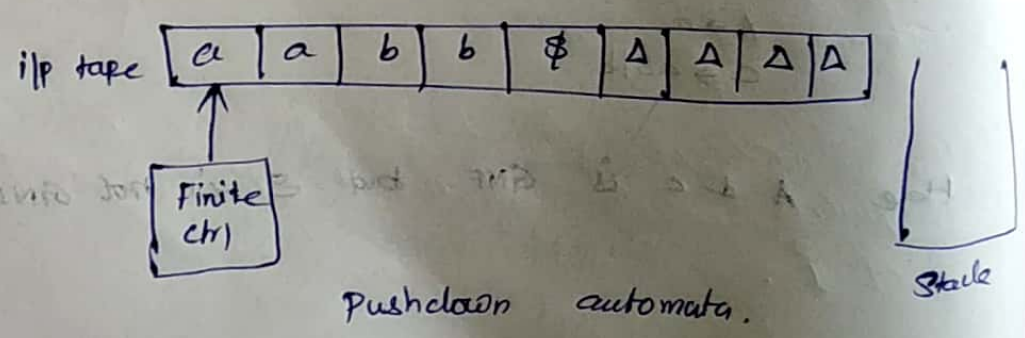 i/p tape a a b b $ Δ Δ Δ Δ
Finite
ctrl
Stack
Pushdown automata.